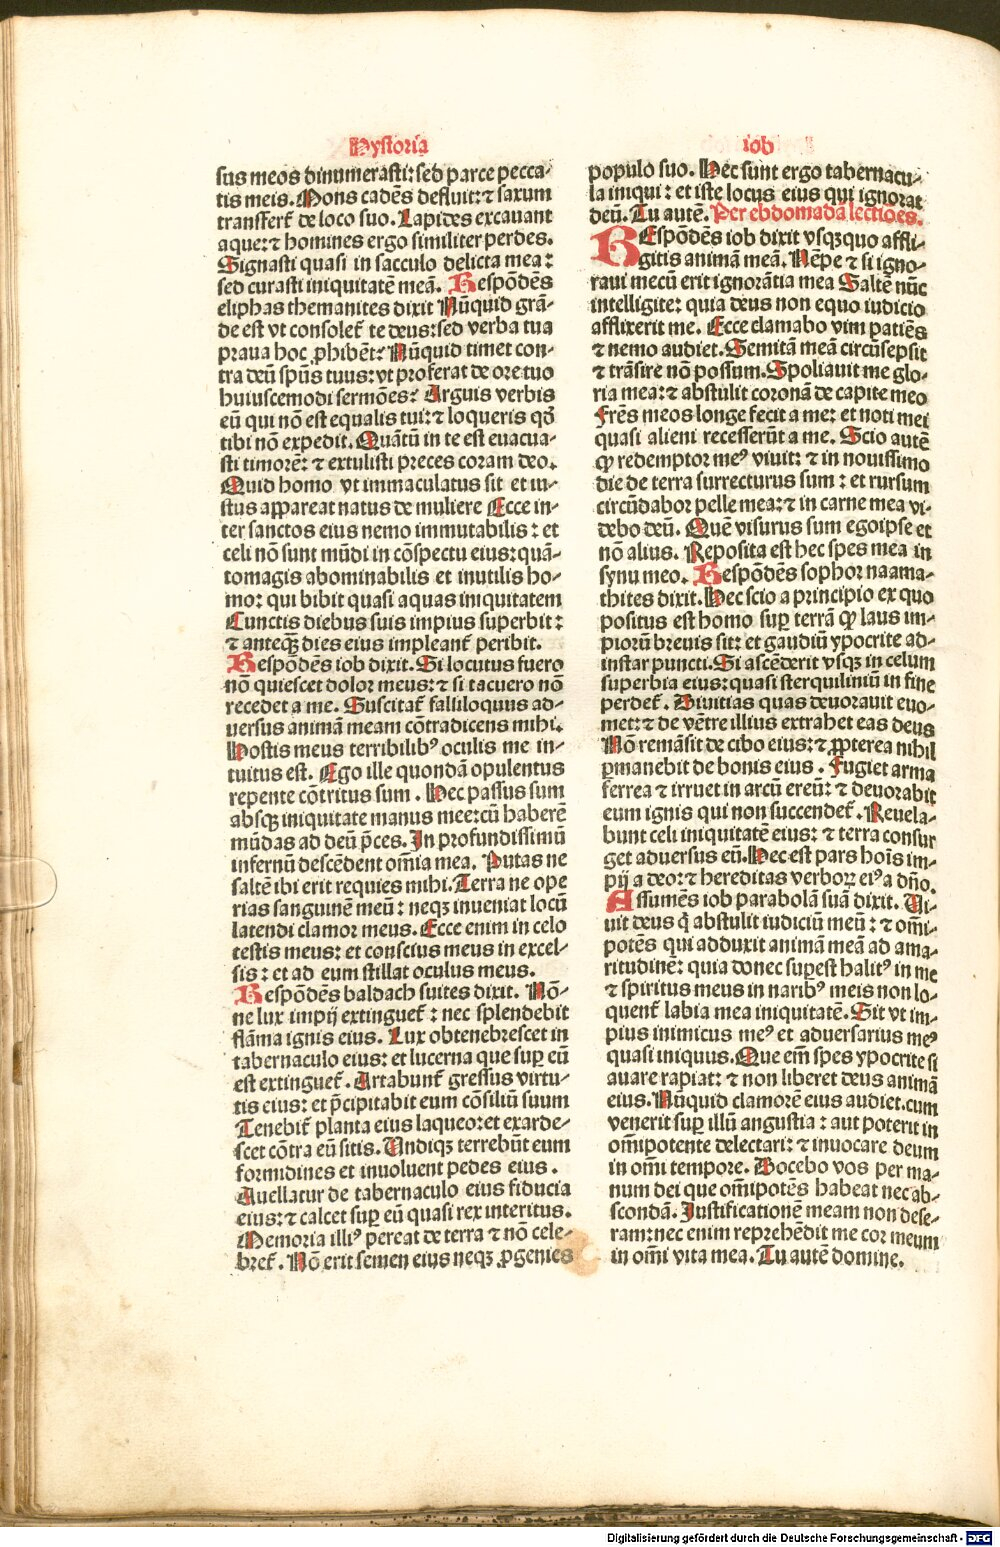 Hystoria
iob
sus meos dinumerasti: sed parce pecca-
tis meis. Mons cadēs defluit: ⁊ saxum
transfert᷑ de loco suo. Lapides excauant
aque: ⁊ homines ergo similiter perdes.
Signasti quasi in sacculo delicta mea:
sed curasti iniquitatē meā. Respōdēs
eliphas themanites dixit Nūquid grā-
de est vt consolet᷑ te deus: sed verba tua
praua hoc ꝓhibēt: Nūquid timet con-
tra deū spūs tuus: vt proferat de ore tuo
huiuscemodi sermōes: Arguis verbis
eū qui nō est equalis tui: ⁊ loqueris qḋ
tibi nō expedit. Quātū in te est euacua-
sti timorē: ⁊ extulisti preces coram deo.
Quid homo vt immaculatus sit et iu-
stus appareat natus de muliere Ecce in-
ter sanctos eius nemo immutabilis: et
celi nō sunt mūdi in cōspectu eius: quā-
tomagis abominabilis et inutilis ho-
mo: qui bibit quasi aquas iniquitatem
Cunctis diebus suis impius superbit:
⁊ anteqꝫ dies eius impleant᷑ peribit.
Respōdēs iob dixit. Si locutus fuero
nō quiescet dolor meus: ⁊ si tacuero nō
recedet a me. Suscitat᷑ falliloquus ad-
uersus animā meam cōtradicens mihi.
Hostis meus terribilibꝰ oculis me in-
tuitus est. Ego ille quondā opulentus
repente cōtritus sum. Hec passus sum
absqꝫ iniquitate manus mee: cū haberē
mūdas ad deū p̄ces. In profundissimū
infernū descēdent om̄ia mea. Putas ne
saltē ibi erit requies mihi. Terra ne ope
rias sanguinē meū: neqꝫ inueniat locū
latendi clamor meus. Ecce enim in celo
testis meus: et conscius meus in excel-
sis: et ad eum stillat oculus meus.
Respōdēs baldach suites dixit. Nō-
ne lux impij extinguet᷑: nec splendebit
flāma ignis eius. Lux obtenebrescet in
tabernaculo eius: et lucerna que suꝑ eū
est extinguet᷑. Artabunt᷑ gressus virtu-
tis eius: et p̄cipitabit eum cōsiliū suum
Tenebit᷑ planta eius laqueo: et exarde-
scet cōtra eū sitis. Undiqꝫ terrebūt eum
formidines et inuoluent pedes eius.
Auellatur de tabernaculo eius fiducia
eius: ⁊ calcet suꝑ eū quasi rex interitus.
Memoria illiꝰ pereat de terra ⁊ nō cele-
bret᷑. Nō erit semen eius neqꝫ ꝓgenies
populo suo. Hec sunt ergo tabernacu-
la iniqui: et iste locus eius qui ignorat
deū. Tu autē. Per ebdomadā lectiōes.
REspōdēs iob dixit vsqꝫquo affli-
gitis animā meā. Nēpe ⁊ si igno-
raui mecū erit ignorātia mea Saltē nūc
intelligite: quia deus non equo iudicio
afflixerit me. Ecce clamabo vim patiēs
⁊ nemo audiet. Semitā meā circūsepsit
⁊ trāsire nō possum. Spoliauit me glo-
ria mea: ⁊ abstulit coronā de capite meo
Fr̄es meos longe fecit a me: et noti mei
quasi alieni recesserūt a me. Scio autē
ꝙ redemptor meꝰ viuit: ⁊ in nouissimo
die de terra surrecturus sum: et rursum
circūdabor pelle mea: ⁊ in carne mea vi-
debo deū. Quē visurus sum egoipse et
nō alius. Reposita est hec spes mea in
synu meo. Respōdēs sophor naama-
thites dixit. Hec scio a principio ex quo
positus est homo suꝑ terrā ꝙ laus im-
piorū breuis sit: et gaudiū ypocrite ad-
instar puncti. Si ascēderit vsqꝫ in celum
superbia eius: quasi sterquiliniū in fine
perdet᷑. Diuitias quas deuorauit euo-
met: ⁊ de vētre illius extrahet eas deus
Nō remāsit de cibo eius: ⁊ ꝓpterea nihil
ꝑmanebit de bonis eius. Fugiet arma
ferrea ⁊ irruet in arcū ereū: ⁊ deuorabit
eum ignis qui non succendet᷑. Reuela-
bunt celi iniquitatē eius: ⁊ terra consur
get aduersus eū. Hec est pars hoīs im-
pij a deo: ⁊ hereditas verboꝝ eiꝰ a dn̄o.
Assumēs iob parabolā suā dixit. Ui-
uit deus q̇ abstulit iudiciū meū: ⁊ om̄i-
potēs qui adduxit animā meā ad ama-
ritudinē: quia donec suꝑest halitꝰ in me
⁊ spiritus meus in naribꝰ meis non lo-
quent᷑ labia mea iniquitatē. Sit vt im-
pius inimicus meꝰ et aduersarius meꝰ
quasi iniquus. Que em̄ spes ypocrite si
auare rapiat: ⁊ non liberet deus animā
eius. Nūquid clamorē eius audiet. cum
venerit suꝑ illū angustia: aut poterit in
om̄ipotente delectari: ⁊ inuocare deum
in om̄i tempore. Docebo vos per ma-
num dei que om̄ipotēs habeat nec ab-
scondā. Justificationē meam non dese-
ram: nec enim reprehēdit me cor meum
in om̄i vita mea. Tu autē domine.
Digitalisierung gefördert durch die Deutsche Forschungsgemeinschaft - DFG